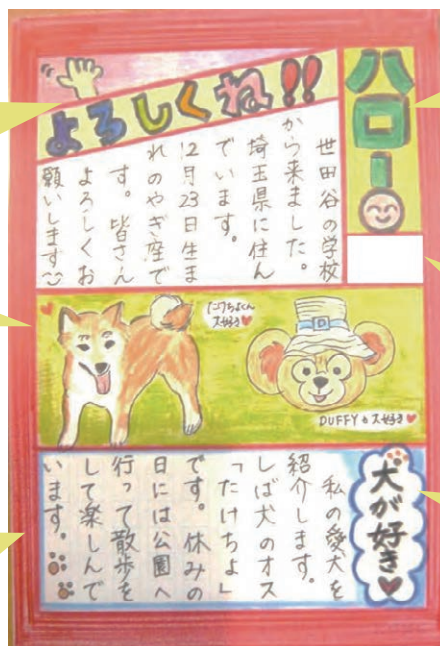 ハロー!
よろしくね!!
世田谷の学校
から来ました。
埼玉県に住ん
でいます。
12月23日生ま
れのやぎ座で
す。皆さん
よろしくお
願いします
たけちよくん
大好き
DUFFYも大好き
犬が好き
私の愛犬を
紹介します。
しば犬のオス
「たけちよ」
です。休みの
日には公園へ
行って散歩を
して楽しんで
います。